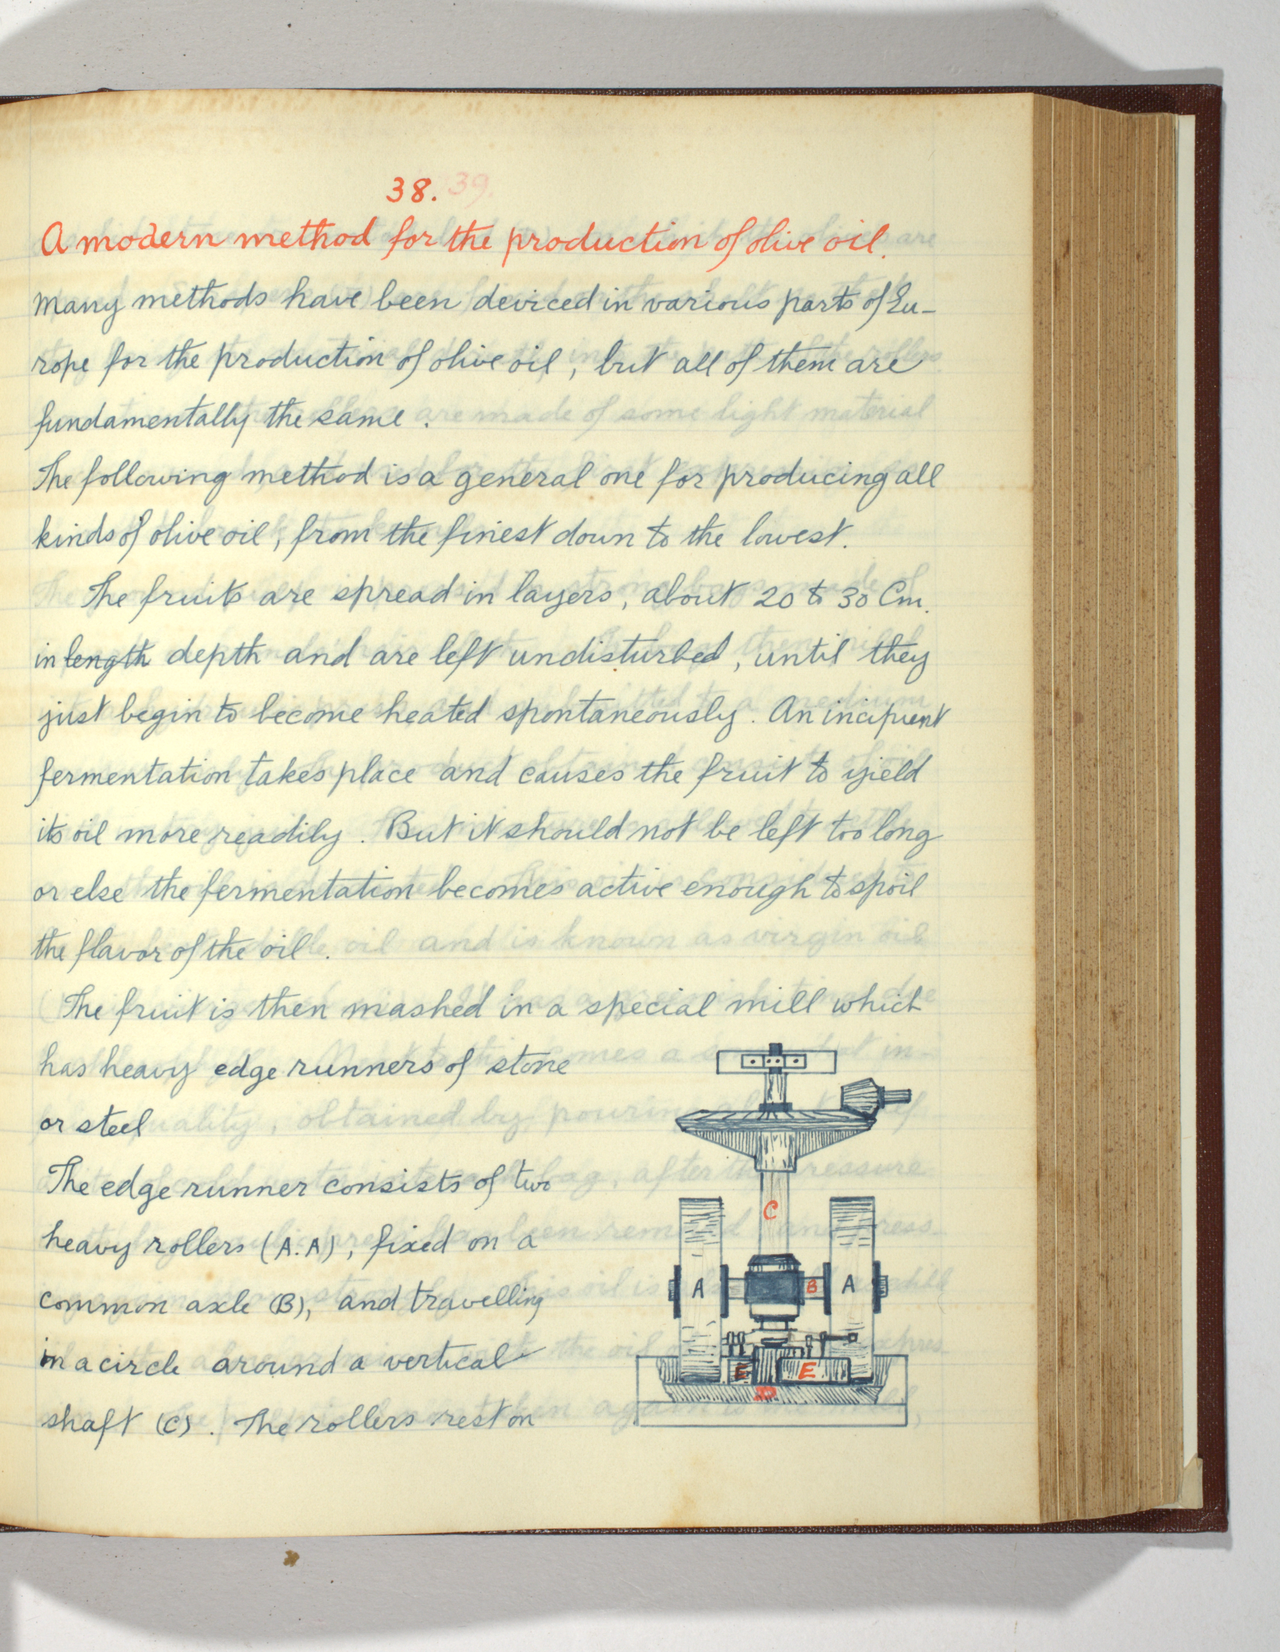 38.
A modern method for the production of olive oil.
Many methods have been deviced in various parts of Eu-
rope for the production of olive oil, but all of them are
fundamentally the same.
The following method is a general one for producing all
kinds of olive oil, from the finest down to the lowest.
The fruits are spread in layers, about 20 to 30 Cm.
in length depth and are left undisturbed, until they
just begin to become heated spontaneously. An incipient
fermentation takes place and causes the fruit to yield
its oil more readily. But it should not be left too long
or else the fermentation becomes active enough to spoil
the flavor of the oil.
The fruit is then mashed in a special mill which
has heavy edge runners of stone
or steel
The edge runner consists of two
heavy rollers (A.A), fixed on a
common axle (B), and travelling
in a circle around a vertical
shaft (C). The rollers rest on
C
A
B
A
E
E
D